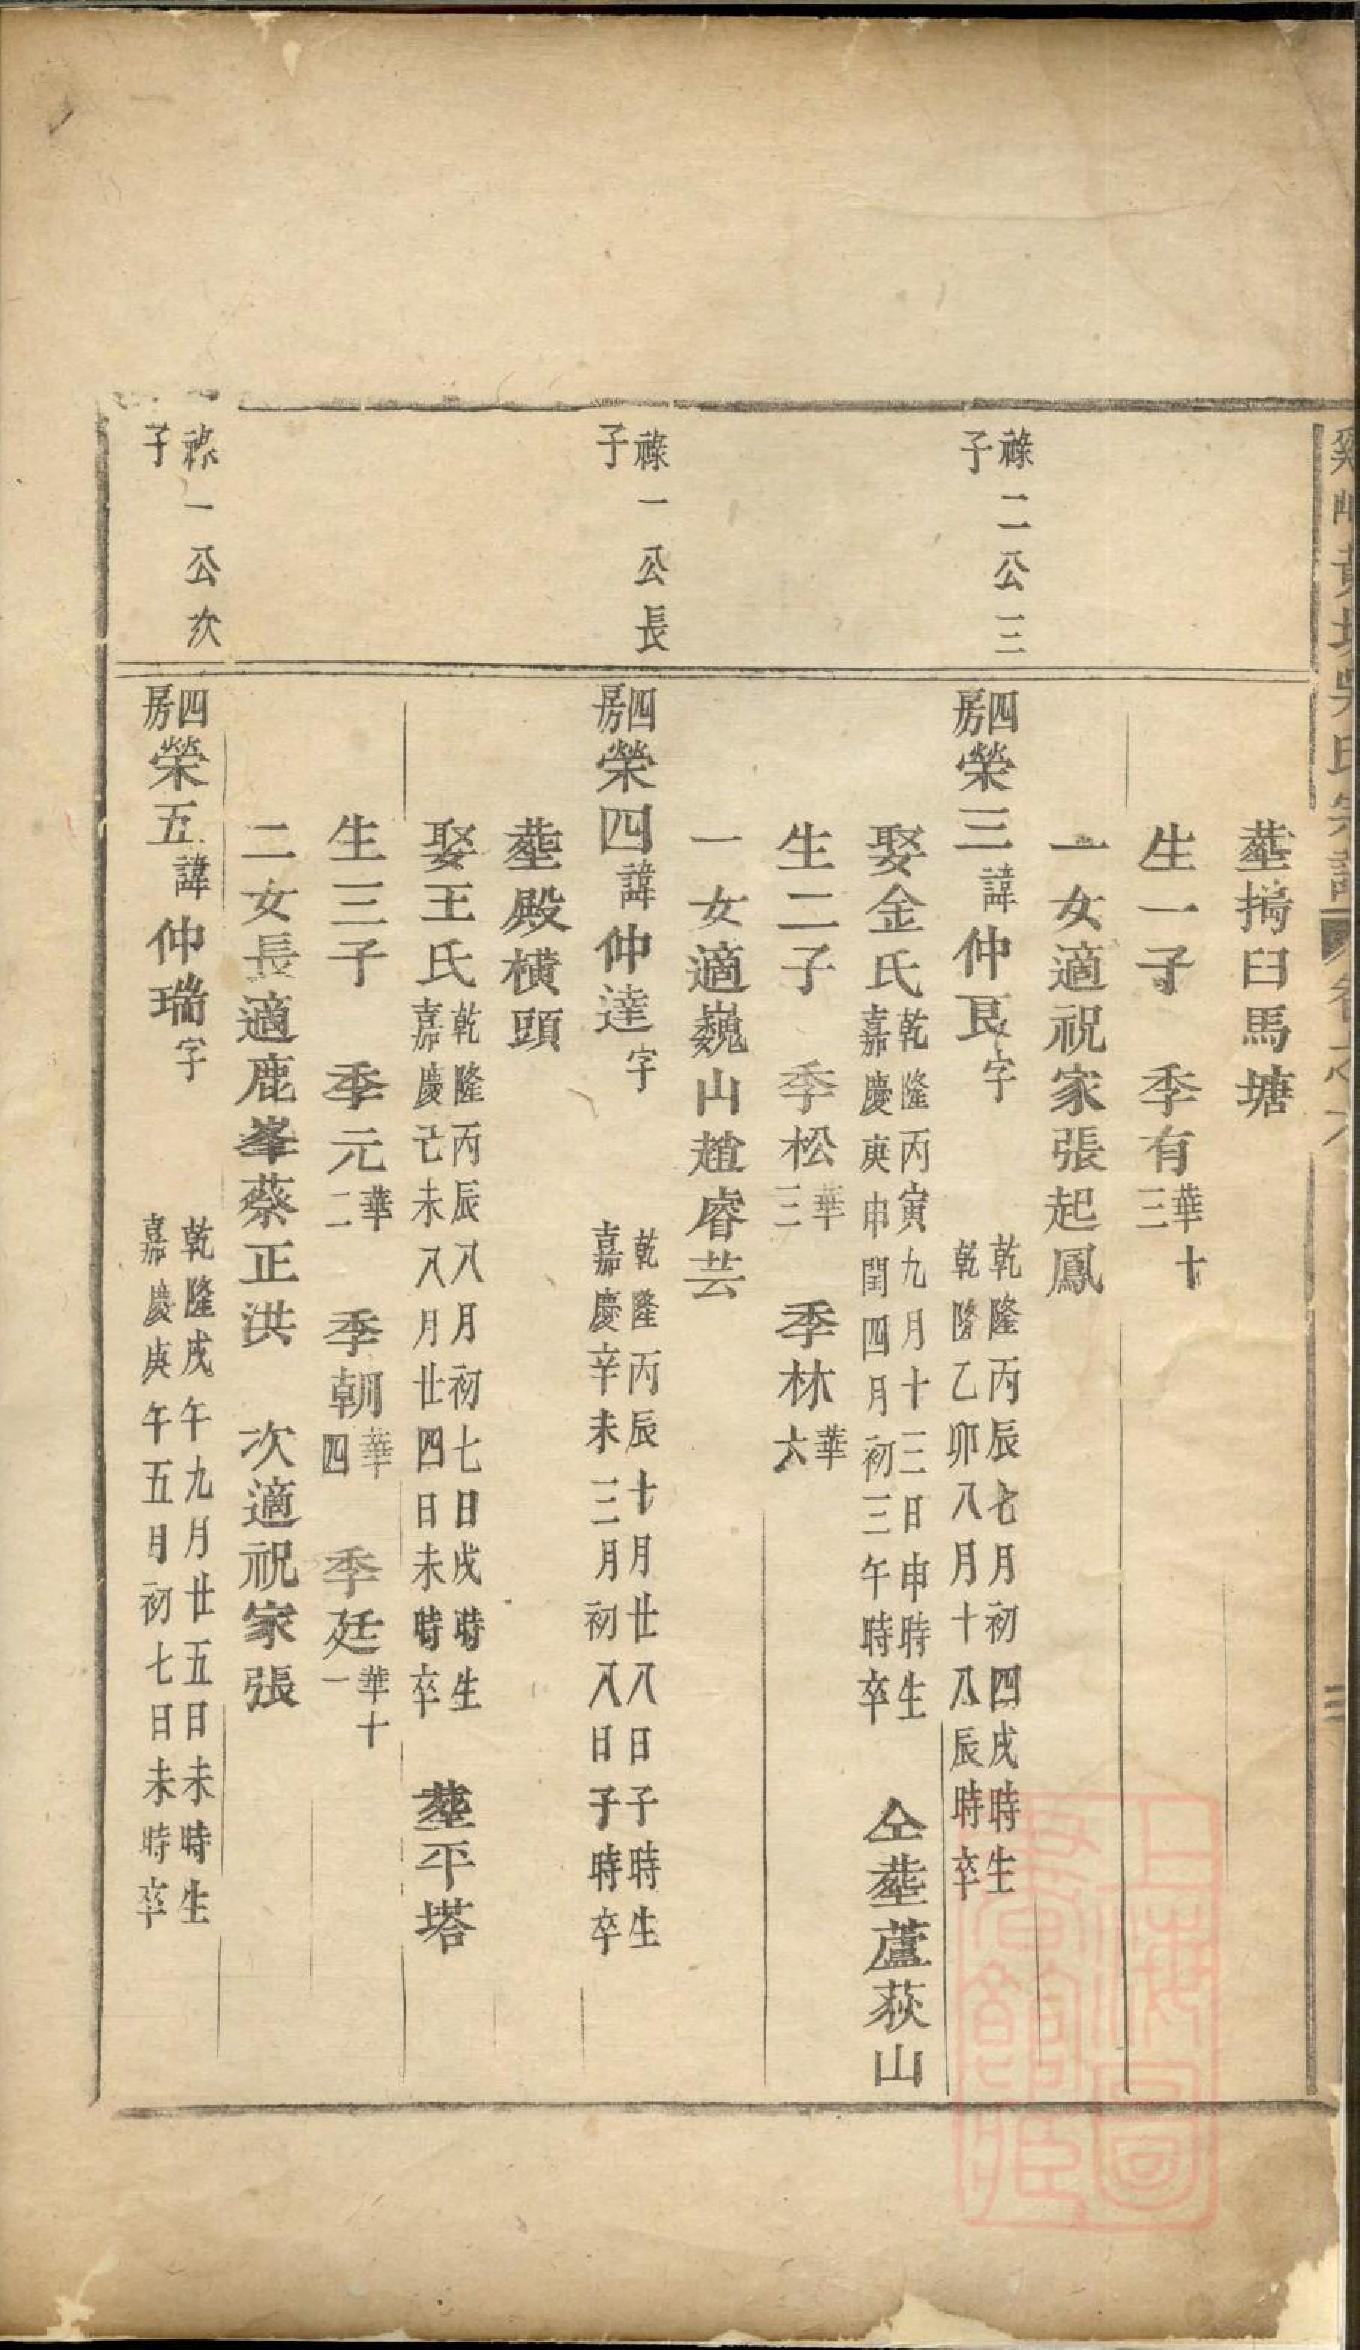 塟搗臼馬塘
生一子　季有華十三
一女適祝家張起鳳
祿二公三子
四房榮三諱仲良字　乾隆丙辰七月初四戌時生　乾隆乙卯八月十八辰時卒
娶金氏乾隆丙寅九月十三日申時生　嘉慶庚申閏四月初三午時卒　仝塟蘆荻山
生二子　季松華三　季林華六
一女適巍山趙睿芸
祿一公長子
四房榮四諱仲達字　乾隆丙辰十月廿八日子時生　嘉慶辛未三月初八日子時卒
塟殿橫頭
娶王氏乾隆丙辰八月初七日戌時生　嘉慶己未八月廿四日未時卒　塟平塔
生三子　季元華二　季朝華四　季廷華十一
二女長適鹿峯蔡正洪　次適祝家張
祿一公次子
四房榮五諱仲瑞字　乾隆戌午九月廿五日未時生　嘉慶庚午五月初七日未時卒
上海圖書館藏